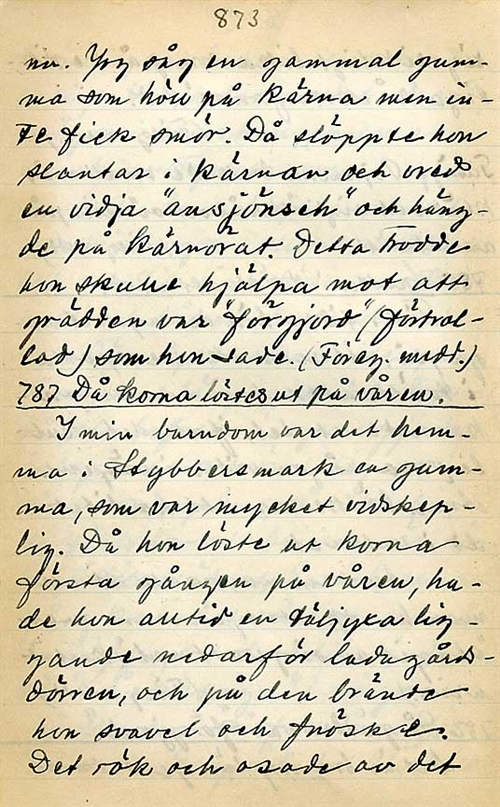 873
nu. Jag såg en gammal gum-
ma som höll på kärna men in-
te fick smör. Då släppte hon
slantar i kärnan och vred
en vidja "ansjönsch" och häng-
de på kärnorat. Detta trodde
hon skulle hjälpa mot att
grädden var "förgjord" (förtrol-
lad) som hon sade. (Föreg. medd.)
787 Då korna löstes ut på våren.
I min barndom var det hem-
ma i Stybbersmark en gum-
ma, som var mycket vidskep-
lig. Då hon löste ut korna
första gången på våren, ha-
de hon alltid en täljyxa lig-
gande nedanför ladugårds-
dörren, och på den brände
hon svavel och fnöske.
Det rök och osade av det